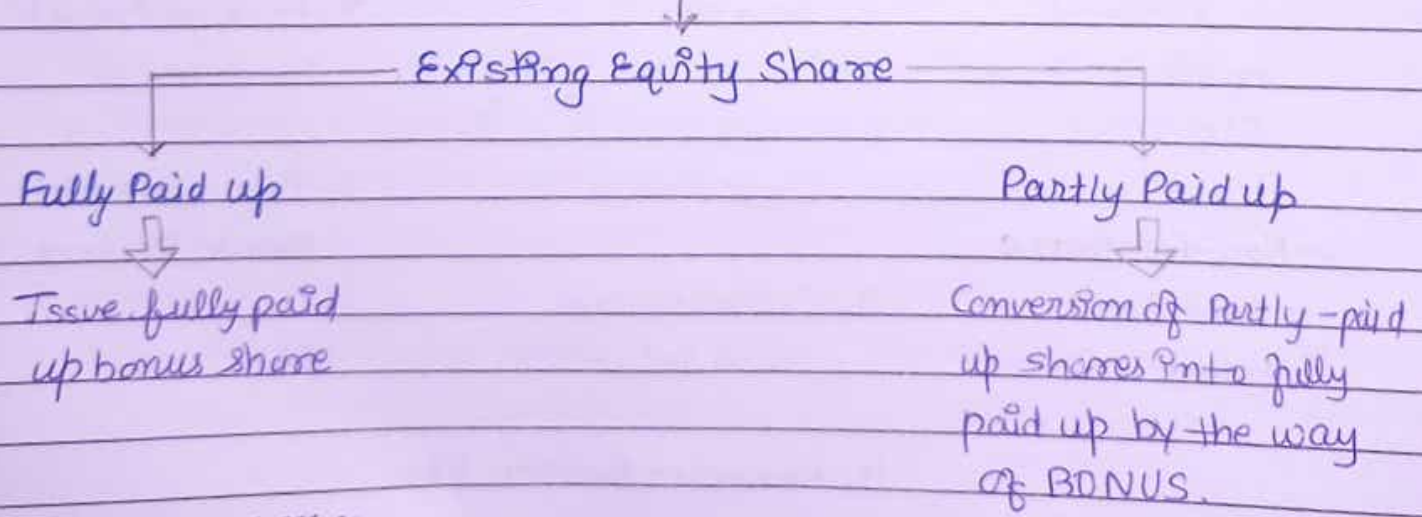 Existing Equity Share
Fully Paid up
Partly Paid up
Issue fully paid
up bonus share
Conversion of Partly-paid
up shares into fully
paid up by the way
of BONUS.